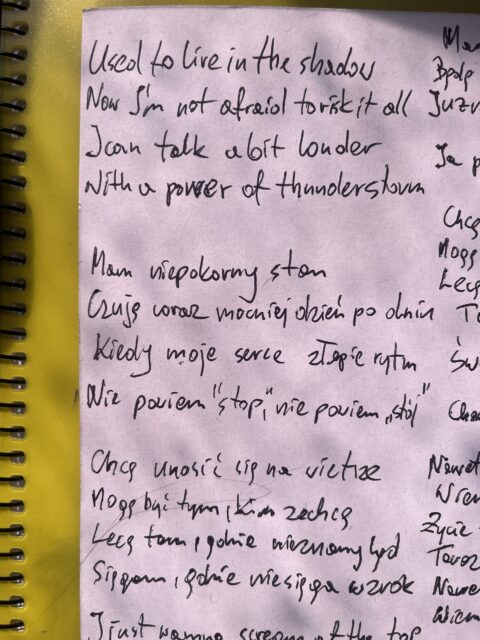 Used to live in the shadow
Now I'm not afraid to risk it all
I can talk a bit louder
With a power of thunderstorm
Mam niepokorny stan
Czuję coraz mocniej dzień po dniu
Kiedy moje serce złapie rytm
Nie powiem "stop," nie powiem „stój"
Chcę unosić się na wietrze
Mogę być tym, kim zechcę
Lecę tam, gdzie nieznany ląd
Sięgam, gdzie nie sięga wzrok
I just wanna scream at the top
Ja
Chcę
Mogę
Lecę
Nawet
Życie